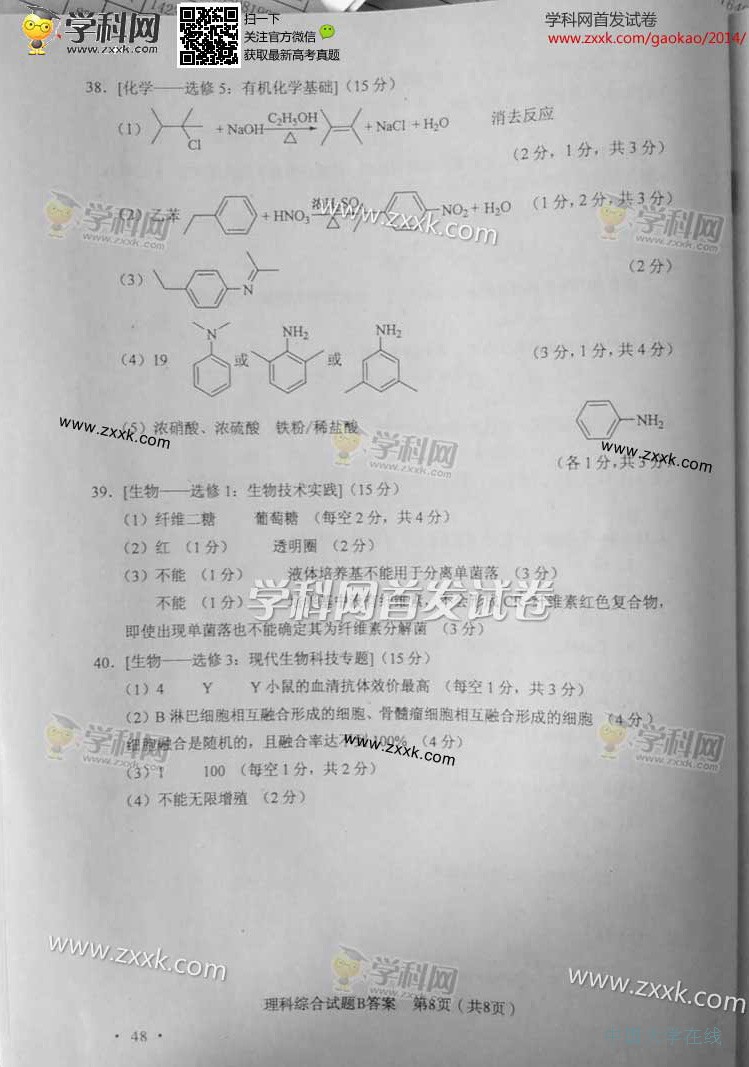 学科网
www.zxxk.com
扫一下
关注官方微信
获取最新高考真题
学科网首发试卷
www.zxxk.com/gaokao/2014/
38. [化学——选修 5：有机化学基础]（15 分）
（1） Cl + NaOH C₂H₅OH △ + NaCl + H₂O 消去反应
（2 分，1 分，共 3 分）
（2）乙苯 + HNO₃ △ NO₂ + H₂O （1 分，2 分，共 3 分）
（3） N （2 分）
（4）19 N 或 NH₂ 或 NH₂ （3 分，1 分，共 4 分）
（5）浓硝酸、浓硫酸 铁粉/稀盐酸 NH₂
（各 1 分，共 3 分）
39. [生物——选修 1：生物技术实践]（15 分）
（1）纤维二糖 葡萄糖 （每空 2 分，共 4 分）
（2）红 （1 分） 透明圈 （2 分）
（3）不能 （1 分） 液体培养基不能用于分离单菌落 （3 分）
不能 （1 分） 维素红色复合物，
即使出现单菌落也不能确定其为纤维素分解菌 （3 分）
40. [生物——选修 3：现代生物科技专题]（15 分）
（1）4 Y Y 小鼠的血清抗体效价最高 （每空 1 分，共 3 分）
（2）B 淋巴细胞相互融合形成的细胞、骨髓瘤细胞相互融合形成的细胞 （4 分）
细胞融合是随机的，且融合率达不到 100% （4 分）
（3）1 100 （每空 1 分，共 2 分）
（4）不能无限增殖 （2 分）
学科网首发试卷
www.zxxk.com
理科综合试题B答案 第8页（共8页）
· 48 ·